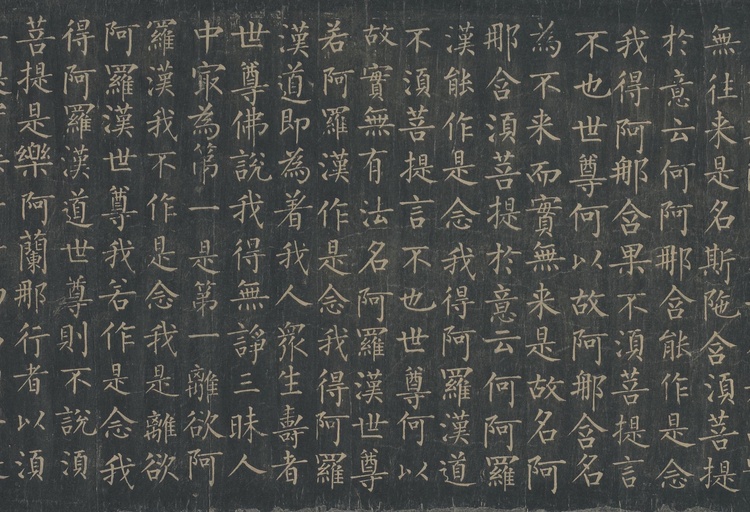 無往来是名斯陁含湏菩提
扵意云何阿那含能作是念
我得阿那含果不湏菩提言
不也世尊何以故阿那含名
為不来而實無来是故名阿
那含湏菩提扵意云何阿羅
漢能作是念我得阿羅漢道
不湏菩提言不也世尊何以
故實無有法名阿羅漢世尊
若阿羅漢作是念我得阿羅
漢道即為著我人眾生壽者
世尊佛說我得無諍三昧人
中冣為第一是第一離欲阿
羅漢我不作是念我是離欲
阿羅漢世尊我若作是念我
得阿羅漢道世尊則不說湏
菩提是樂阿蘭那行者以湏